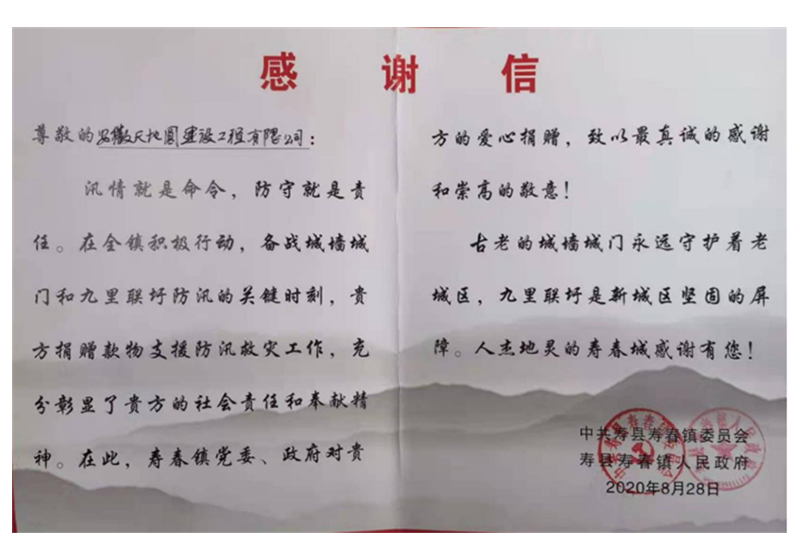 感谢信
尊敬的安徽天地圆建设工程有限公司：
汛情就是命令，防守就是贵
任。在全镇积极行动，备战城墙城
门和九里联圩防汛的关键时刻，贵
方捐赠款物支援防汛救灾工作，充
分彰显了贵方的社会责任和奉献精
神。在此，寿春镇党委、政府对贵
方的爱心捐赠，致以最真诚的感谢
和崇高的敬意！
古老的城墙城门永远守护着老
城区，九里联圩是新城区坚固的屏
障。人杰地灵的寿春城感谢有您！
中共寿县寿春镇委员会
寿县寿春镇人民政府
2020年8月28日